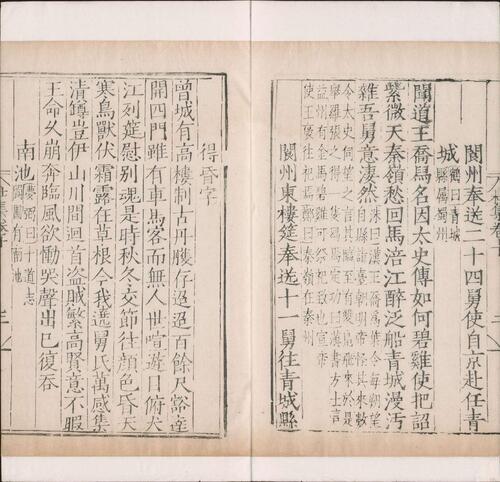 閬州奉送二十四舅使自京赴任青
城
鶴曰青城
縣屬蜀州
聞道王喬馬名因太史傳如何碧雞使把詔
紫微天秦嶺愁回馬涪江醉泛船青城漫汚
雜吾舅意淒然
閬州東樓筵奉送十一舅往青城縣
得昏字
曾城有高樓制古丹雘存迢迢百餘尺豁達
開四門雖有車馬客而無人世喧遊目俯大
江列筵慰别魂是時秋冬交節往顔色昏天
寒鳥獸伏霜露在草根今我送舅氏萬感集
清罇豈伊山川間迴首盗賊繁高賢意不暇
王命久崩奔臨風欲慟哭聲出已復吞
南池
夢弼曰十道志
閬中有南池